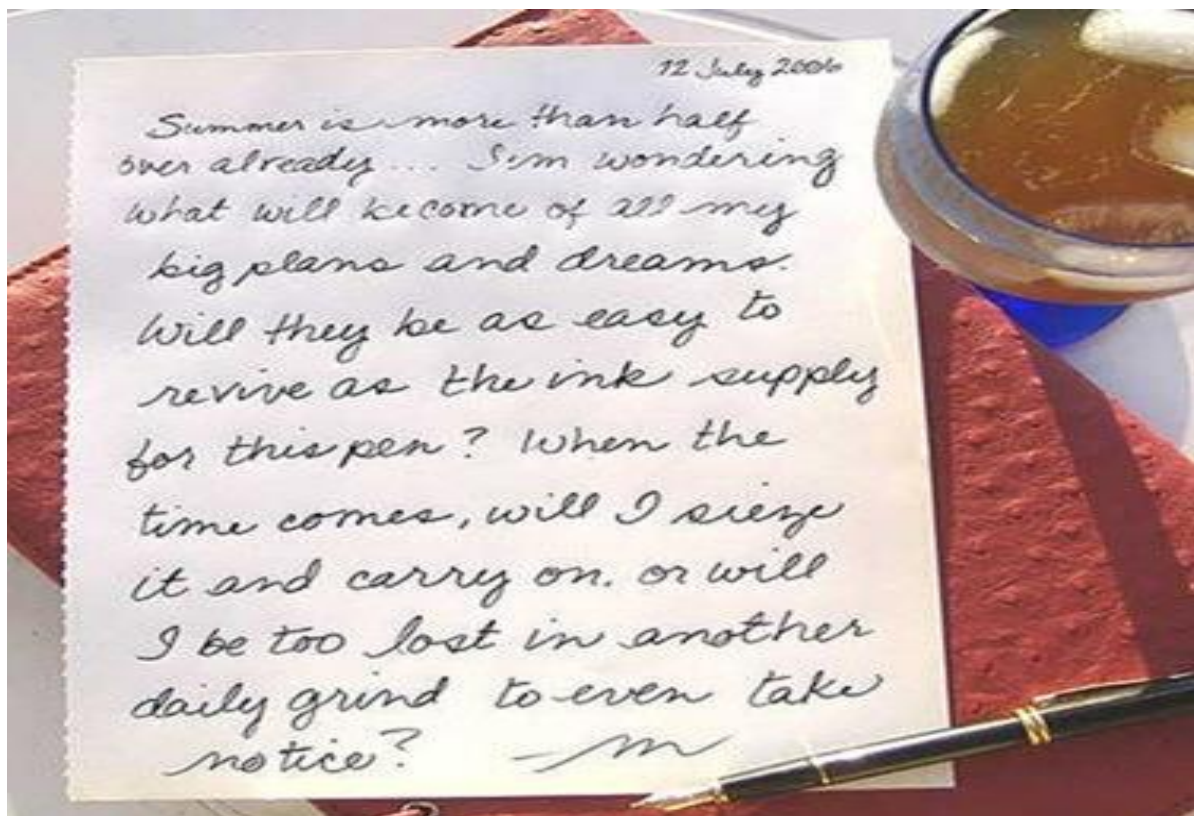 12 July 2006
Summer is more than half
over already.... I'm wondering
what will become of all my
big plans and dreams.
Will they be as easy to
revive as the ink supply
for this pen? When the
time comes, will I sieze
it and carry on. or will
I be too lost in another
daily grind to even take
notice? —m